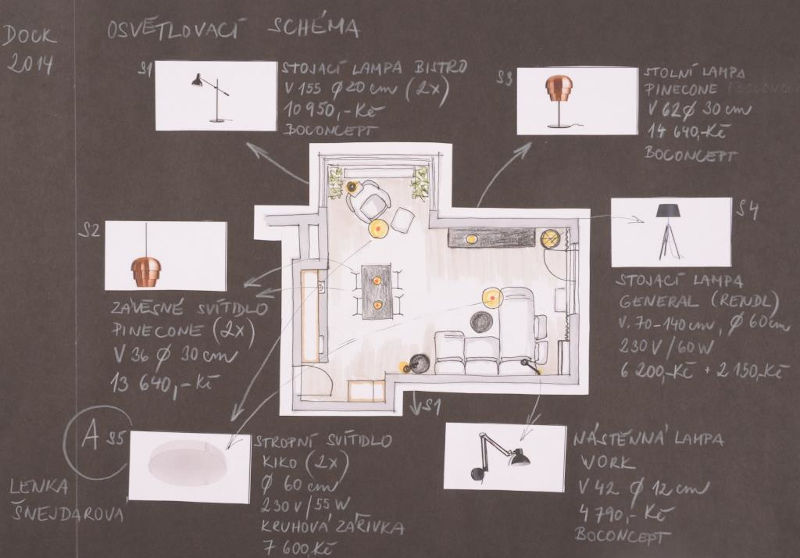 DOCK
2014
OSVĚTLOVACÍ SCHÉMA
S1
STOJACÍ LAMPA BISTRO
V 155 Ø 20 cm (2x)
10 950,- Kč
BOCONCEPT
S3
STOLNÍ LAMPA
PINECONE
V 62 Ø 30 cm
14 640,- Kč
BOCONCEPT
S2
ZÁVĚSNÉ SVÍTIDLO
PINECONE (2x)
V 36 Ø 30 cm
13 640,- Kč
S4
STOJACÍ LAMPA
GENERAL (RENDL)
V. 70-140 cm, Ø 60 cm
230 V / 60 W
6 200,- Kč + 2 150,- Kč
S1
A
S5
STROPNÍ SVÍTIDLO
KIKO (2x)
Ø 60 cm
230 V / 55 W
KRUHOVÁ ZÁŘIVKA
7 600,- Kč
NÁSTĚNNÁ LAMPA
WORK
V 42 Ø 12 cm
4 790,- Kč
BOCONCEPT
LENKA
ŠNEJDAROVÁ